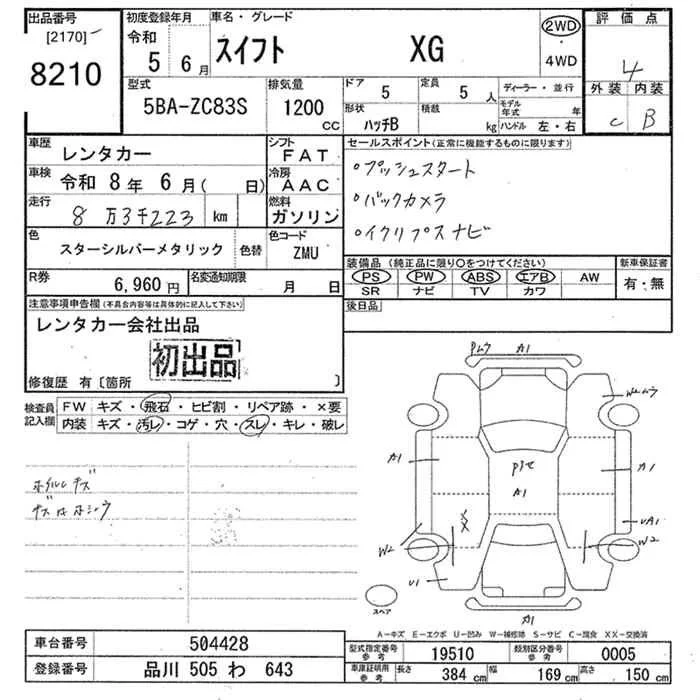 出品番号
[2170]
8210
初度登録年月
令和
5 6月
車名・グレード
スイフト XG
2WD
・
4WD
評価点
4
外装 内装
C B
型式
5BA-ZC83S
排気量
1200
CC
ドア
5
定員
5 人
形状
ハッチB
積載
kg
ディーラー・並行
モデル年式 年
ハンドル 左・右
車歴
レンタカー
シフト
FAT
車検
令和 8年 6月( 日)
冷房
AAC
走行
8万3千223 km
燃料
ガソリン
色
スターシルバーメタリック
色替
色コード
ZMU
R券
6,960円
名変通知期限
月 日
セールスポイント(正常に機能するものに限ります)
○プッシュスタート
○バックカメラ
○イクリプスナビ
装備品(純正品に限り○をつけてください)
PS PW ABS エアB AW
SR ナビ TV カワ
新車保証書
有・無
後日品
注意事項申告欄(不具合内容等は具体的に記入して下さい)
レンタカー会社出品
初出品
修復歴 有〔箇所 〕
検査員記入欄
FW キズ・飛石・ヒビ割・リペア跡・×要
内装 キズ・汚レ・コゲ・穴・スレ・キレ・破レ
ホイルキズ
キズ有ホショウ
Pムラ A1
W2ムラ
A1
A1
Pヨセ
A1
UA1
W2
W2
U1
A1
スペア
A-キズ E-エクボ U-凹み W-補修跡 S-サビ C-腐食 XX-交換済
車台番号
504428
登録番号
品川 505 わ 643
型式指定番号
参考
19510
類別区分番号
参考
0005
車庫証明用
参考
長さ 384 cm
幅 169 cm
高さ 150 cm